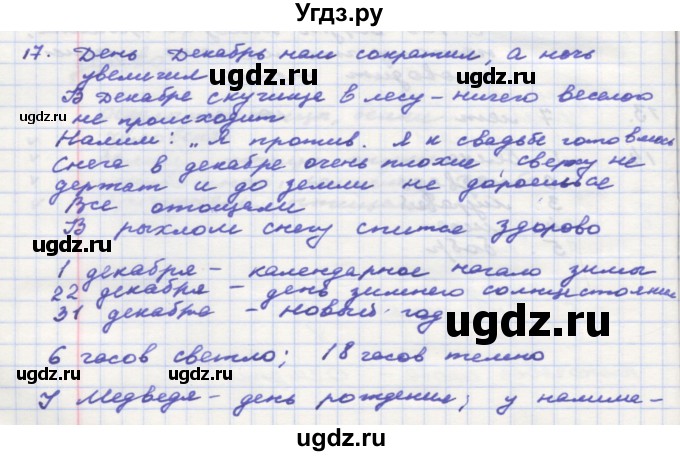 Угдз.ру
17. День Декабрь нам сократил, а ночь
увеличил
В Декабре скучище в лесу – ничего веселого
не происходит
Налим: „Я против. Я к свадьбе готовлюсь
Снега в декабре очень плохие сверху не
держат и до земли не
Все отощали
В рыхлом снегу спится здорово
1 декабря – календарное начало зимы
22 декабря – день зимнего солнцестояния
31 декабря – Новый год
6 часов светло; 18 часов темно
У Медведя – день рождения; у налима –
uдgdz.ru
uдgdz.ru
uдgdz.ru
uдgdz.ru
uдgdz.ru
uдgdz.ru
uдgdz.ru
uдgdz.ru